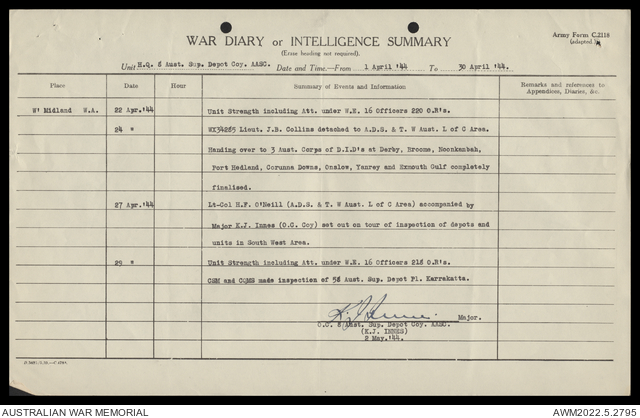 Army Form C.2118
(adapted)
WAR DIARY or INTELLIGENCE SUMMARY
(Erase heading not required).
Unit H.Q. 8 Aust. Sup. Depot Coy. AASC. Date and Time.—From 1 April '44 To 30 April '44.
Place Date Hour Summary of Events and Information Remarks and references to Appendices, Diaries, &c.
W' Midland W.A. 22 Apr.'44 Unit Strength including Att. under W.E. 16 Officers 220 O.R's.
24 " WX34265 Lieut. J.B. Collins detached to A.D.S. & T. W Aust. L of C Area.
Handing over to 3 Aust. Corps of D.I.D's at Derby, Broome, Noonkanbah,
Port Hedland, Corunna Downs, Onslow, Yanrey and Exmouth Gulf completely
finalised.
27 Apr.'44 Lt-Col H.F. O'Neill (A.D.S. & T. W Aust. L of C Area) accompanied by
Major K.J. Innes (O.C. Coy) set out on tour of inspection of depots and
units in South West Area.
29 " Unit Strength including Att. under W.E. 16 Officers 218 O.R's.
CSM and CQMS made inspection of 58 Aust. Sup. Depot Pl. Karrakatta.
K J Innes Major.
O.C. 8 Aust. Sup. Depot Coy. AASC.
(K.J. INNES)
2 May.'44.
AUSTRALIAN WAR MEMORIAL AWM2022.5.2795